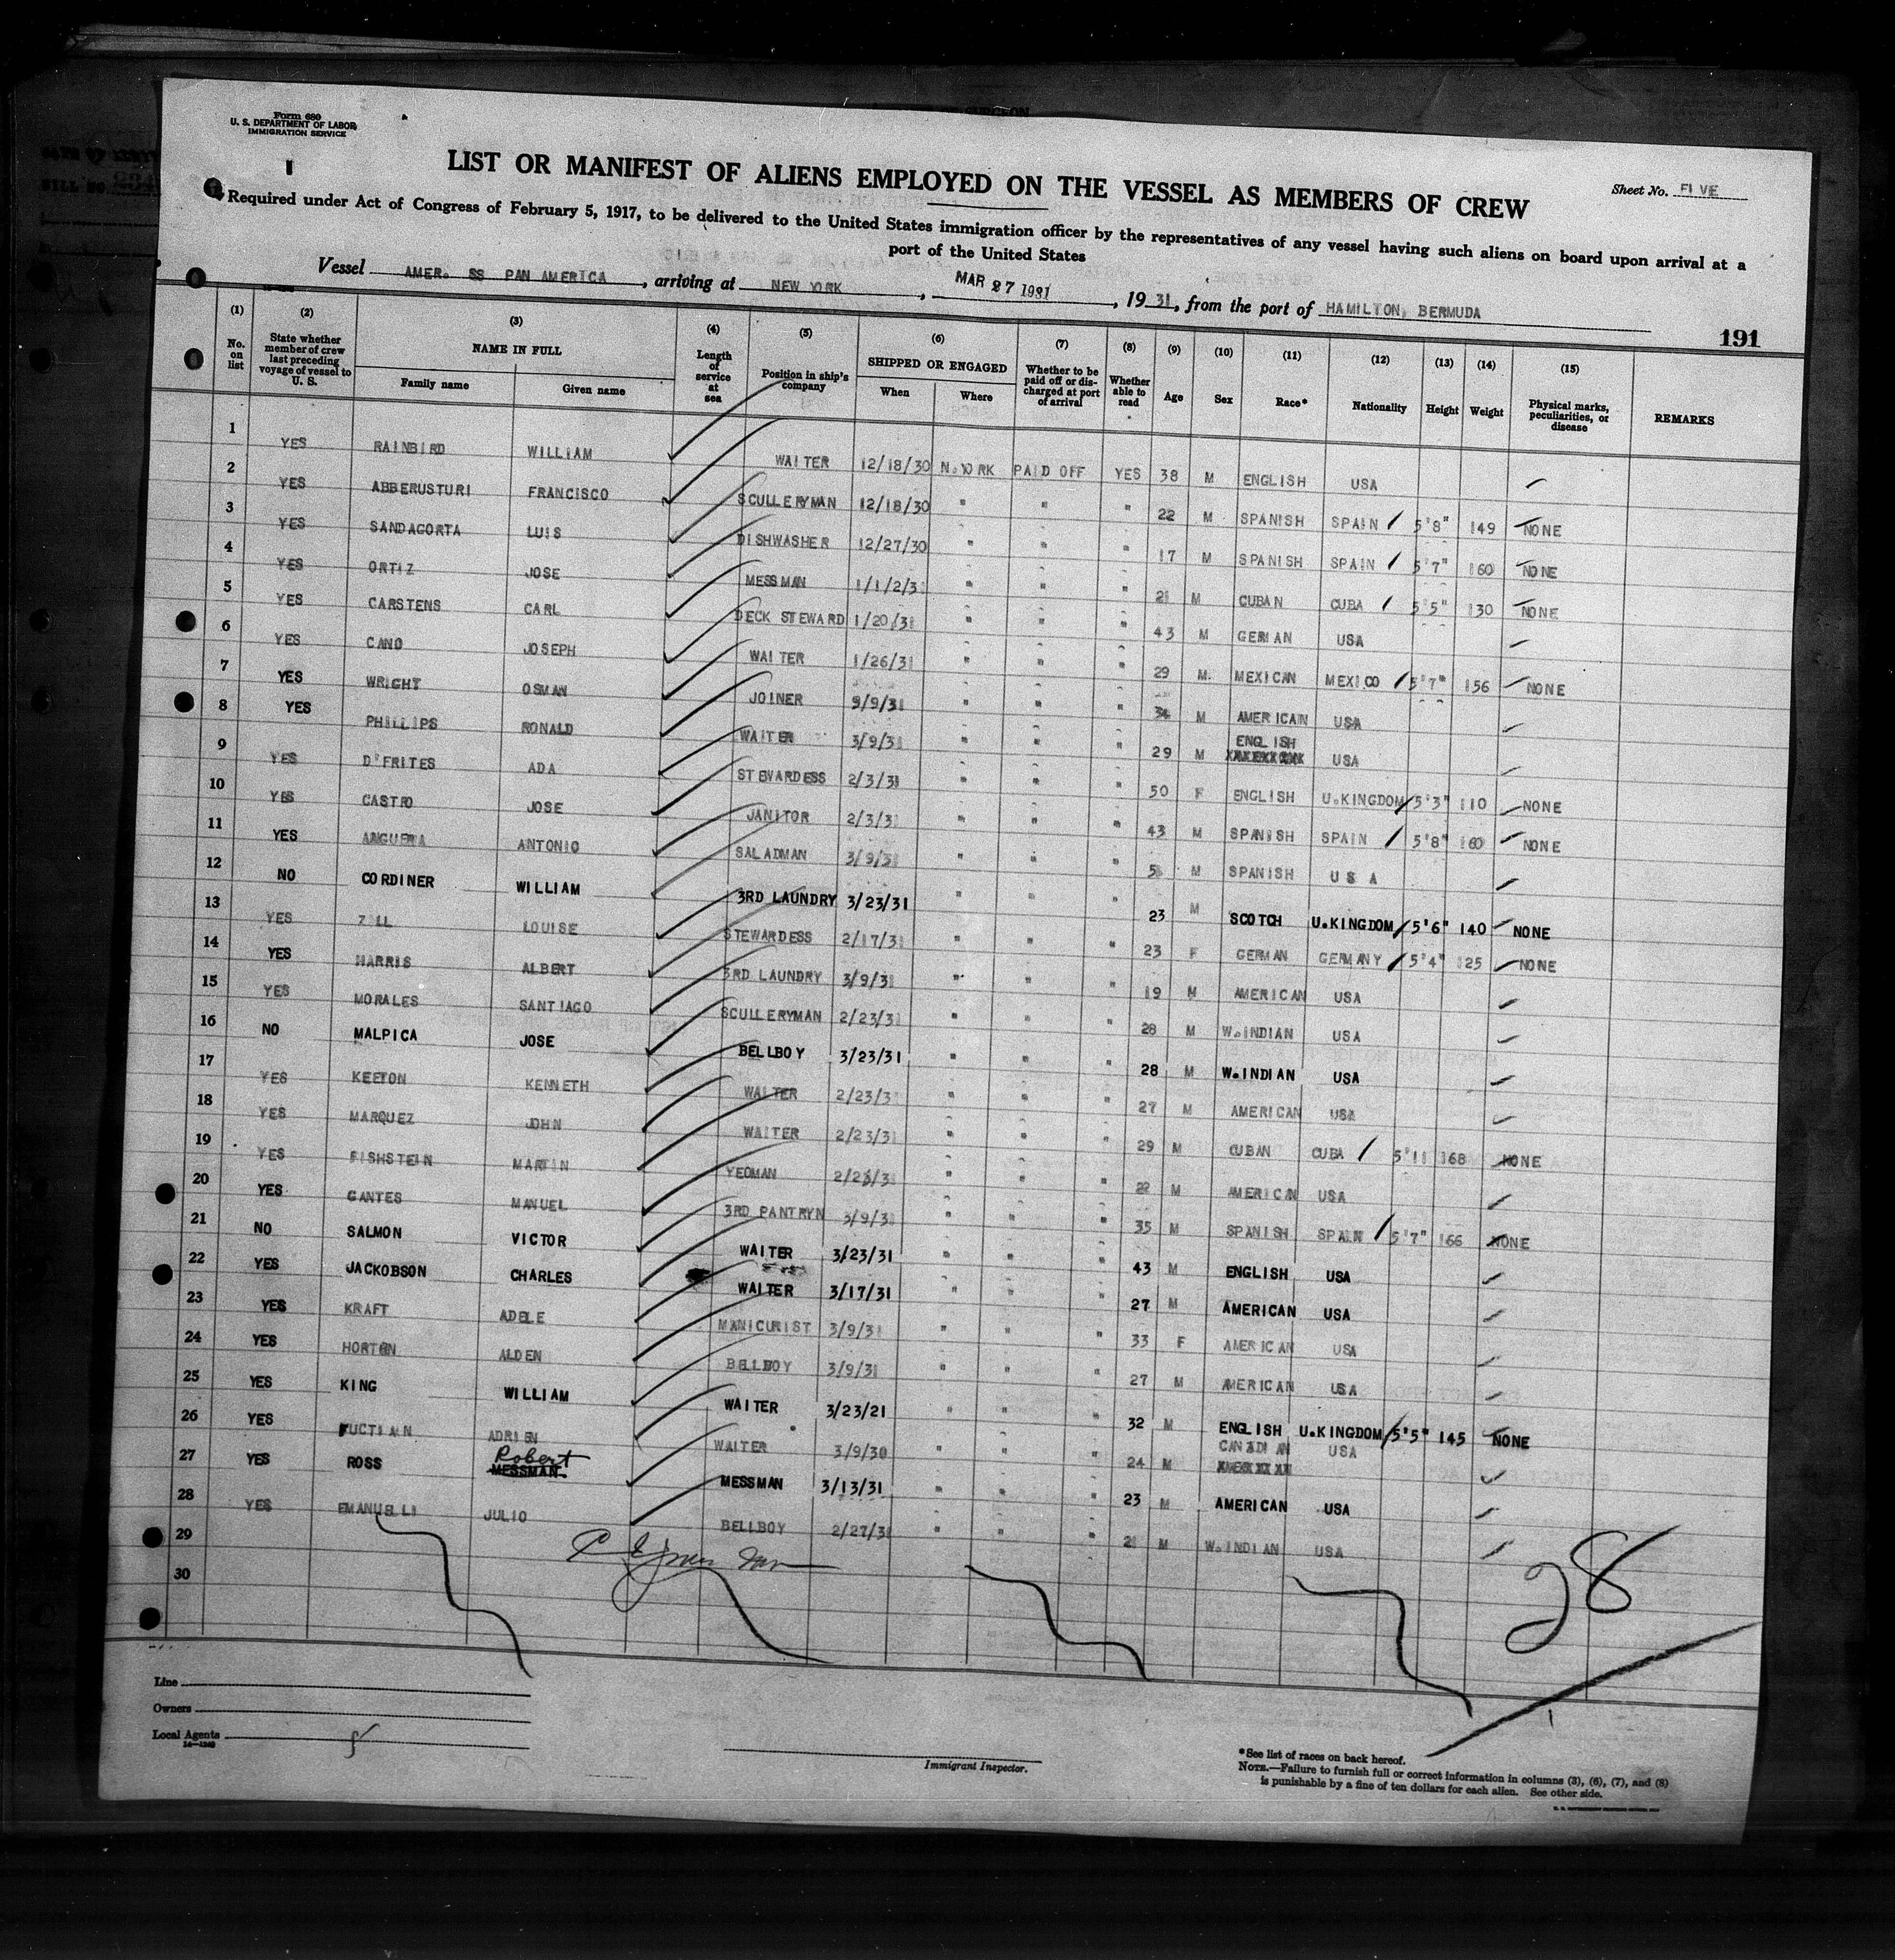 Form 680
U. S. DEPARTMENT OF LABOR
IMMIGRATION SERVICE
LIST OR MANIFEST OF ALIENS EMPLOYED ON THE VESSEL AS MEMBERS OF CREW
Sheet No. FIVE
Required under Act of Congress of February 5, 1917, to be delivered to the United States immigration officer by the representatives of any vessel having such aliens on board upon arrival at a
port of the United States
Vessel AMER. SS PAN AMERICA, arriving at NEW YORK, MAR 27 1931, 1931, from the port of HAMILTON, BERMUDA
191
(1) (2) (3) (4) (5) (6) (7) (8) (9) (10) (11) (12) (13) (14) (15)
No. on list State whether member of crew last preceding voyage of vessel to U. S. NAME IN FULL Family name Given name Length of service at sea Position in ship's company SHIPPED OR ENGAGED When Where Whether to be paid off or discharged at port of arrival Whether able to read Age Sex Race* Nationality Height Weight Physical marks, peculiarities, or disease REMARKS
1 YES RAINBIRD WILLIAM WAITER 12/18/30 N.YORK PAID OFF YES 38 M ENGLISH USA
2 YES ABBERUSTURI FRANCISCO SCULLERYMAN 12/18/30 " " " 22 M SPANISH SPAIN 5'8" 149 NONE
3 YES SANDAGORTA LUIS DISHWASHER 12/27/30 " " " 17 M SPANISH SPAIN 5'7" 160 NONE
4 YES ORTIZ JOSE MESSMAN 1/1/2/31 " " " 21 M CUBAN CUBA 5'5" 130 NONE
5 YES CARSTENS CARL DECK STEWARD 1/20/31 " " " 43 M GERMAN USA
6 YES CANO JOSEPH WAITER 1/26/31 " " " 29 M. MEXICAN MEXICO 5'7" 156 NONE
7 YES WRIGHT OSMAN JOINER 9/9/31 " " " 34 M AMERICAN USA
8 YES PHILLIPS RONALD WAITER 3/9/31 " " " 29 M ENGLISH USA
9 YES D'FRITES ADA STEWARDESS 2/3/31 " " " 50 F ENGLISH U.KINGDOM 5'3" 110 NONE
10 YES CASTRO JOSE JANITOR 2/3/31 " " " 43 M SPANISH SPAIN 5'8" 160 NONE
11 YES ANGUERA ANTONIO SALADMAN 3/9/31 " " " 51 M SPANISH U S A
12 NO CORDINER WILLIAM 3RD LAUNDRY 3/23/31 " " " 23 M SCOTCH U.KINGDOM 5'6" 140 NONE
13 YES ZOLL LOUISE STEWARDESS 2/17/31 " " " 23 F GERMAN GERMANY 5'4" 125 NONE
14 YES HARRIS ALBERT 3RD LAUNDRY 3/9/31 " " " 19 M AMERICAN USA
15 YES MORALES SANTIAGO SCULLERYMAN 2/23/31 " " " 28 M W.INDIAN USA
16 NO MALPICA JOSE BELLBOY 3/23/31 " " " 28 M W.INDIAN USA
17 YES KEETON KENNETH WAITER 2/23/31 " " " 27 M AMERICAN USA
18 YES MARQUEZ JOHN WAITER 2/23/31 " " " 29 M CUBAN CUBA 5'11 168 NONE
19 YES FISHSTEIN MARTIN YEOMAN 2/23/31 " " " 22 M AMERICAN USA
20 YES GANTES MANUEL 3RD PANTRYN 3/9/31 " " " 35 M SPANISH SPAIN 5'7" 166 NONE
21 NO SALMON VICTOR WAITER 3/23/31 " " " 43 M ENGLISH USA
22 YES JACKOBSON CHARLES WAITER 3/17/31 " " " 27 M AMERICAN USA
23 YES KRAFT ADELE MANICURIST 3/9/31 " " " 33 F AMERICAN USA
24 YES HORTON ALDEN BELLBOY 3/9/31 " " " 27 M AMERICAN USA
25 YES KING WILLIAM WAITER 3/23/21 " " " 32 M ENGLISH U.KINGDOM 5'5" 145 NONE
26 YES ADRIEN WAITER 3/9/30 " " " 24 M CANADIAN USA
27 YES ROSS Robert MESSMAN MESSMAN 3/13/31 " " " 23 M AMERICAN USA
28 YES EMANUELLI JULIO BELLBOY 2/27/31 " " " 21 M W.INDIAN USA
29
30
28
Line
Owners
Local Agents
14—1240
Immigrant Inspector.
*See list of races on back hereof.
NOTE.—Failure to furnish full or correct information in columns (3), (6), (7), and (8)
is punishable by a fine of ten dollars for each alien. See other side.